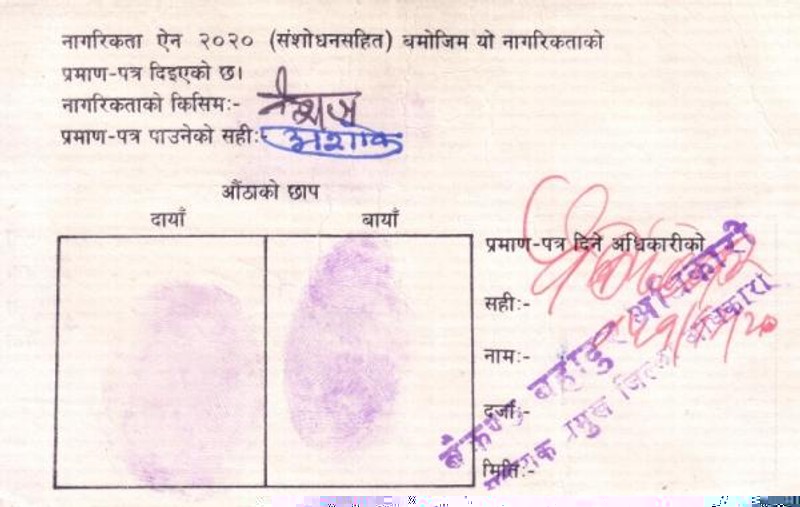 नागरिकता ऐन २०२० (संशोधनसहित) बमोजिम यो नागरिकताको
प्रमाण-पत्र दिइएको छ।
नागरिकताको किसिम:- वंशज
प्रमाण-पत्र पाउनेको सही:
औंठाको छाप
दायाँ बायाँ
प्रमाण-पत्र दिने अधिकारीको
सही:-
नाम:-
दर्जा:-
मिति:-
बहादुर अधिकारी
प्रमुख जिल्ला अधिकारी